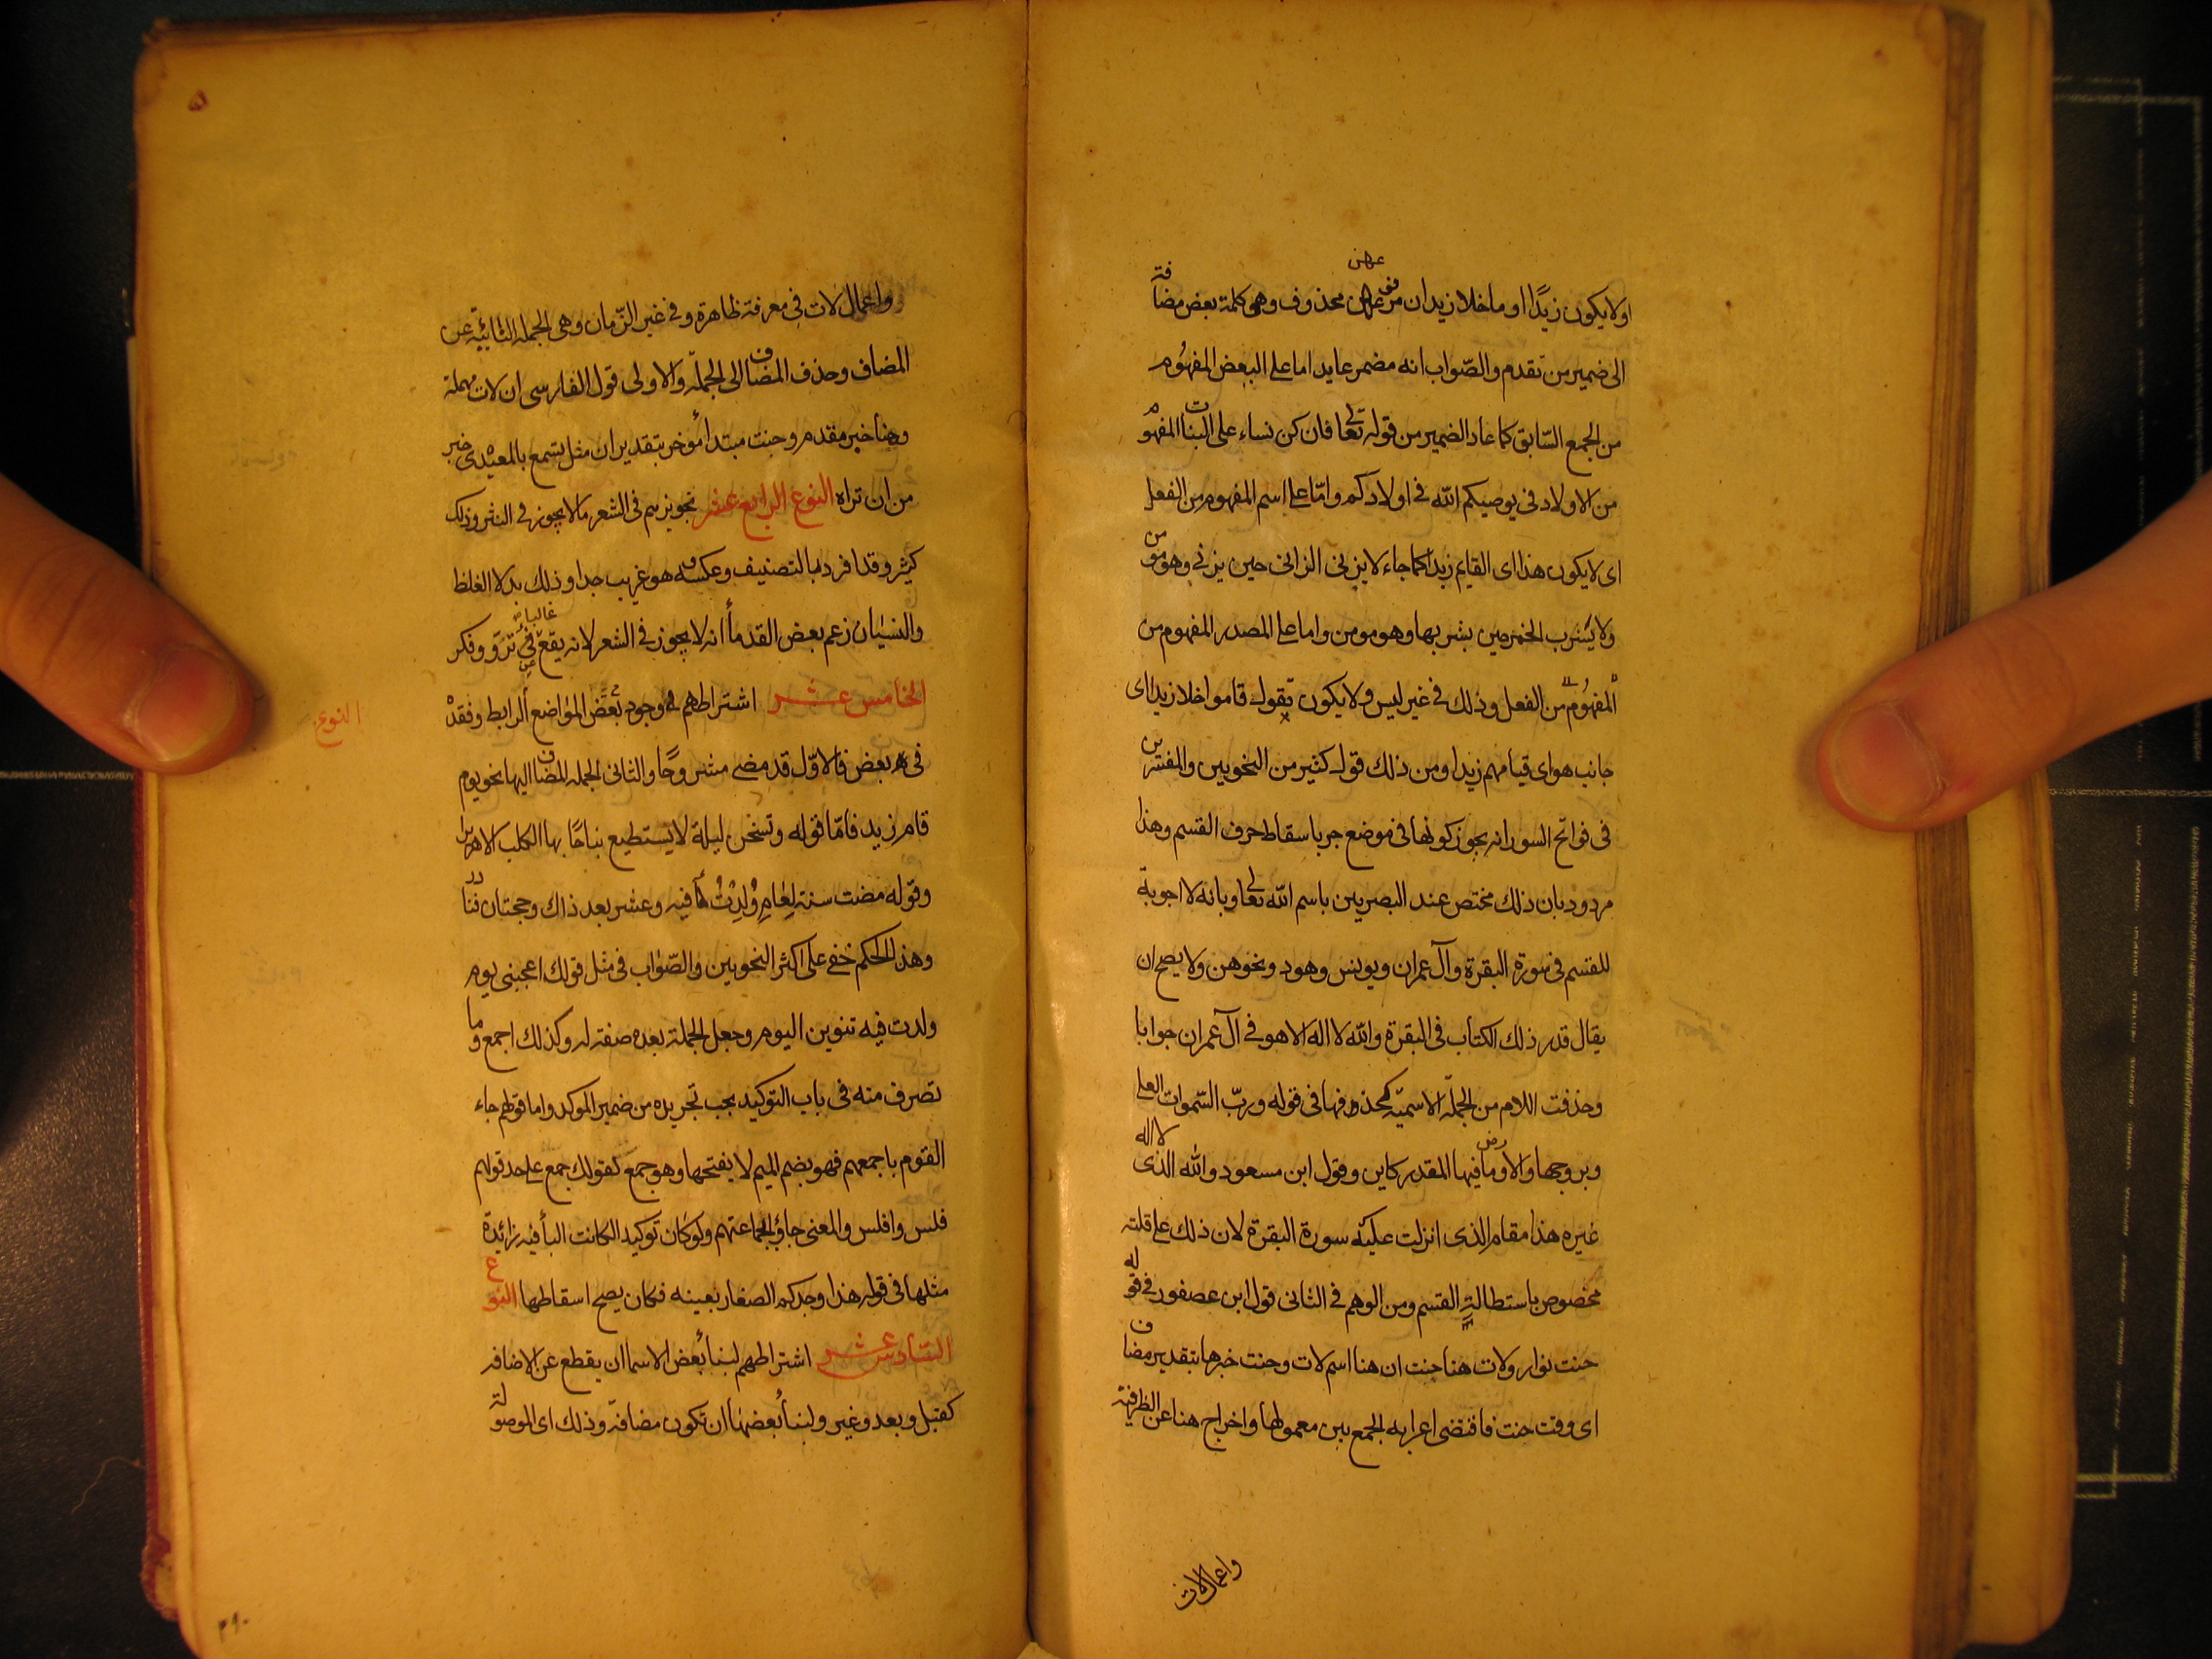 او لا يكون زيدًا او ما خلا زيدا ان مرفوعهن محذوف وهى كلمة بعض مضافة
الى ضمير من تقدم والصّواب انه مضمر عايد اما على البعض المفهُوم
من الجمع السّابق كما عاد الضمير من قوله تعالى فان كن نساء على البنات المفهوم
من الاولاد فى يوصيكم الله فى اولادكم وامّا على اسم المفهوم من الفعل
اى لا يكون هذا اى القايم زيدا كما جاء لا يزنى الزانى حين يزنى وهو مومن
ولا يشرب الخمر حين يشربها وهو مومن واما على المصدر المفهوم من
المفهُوم من الفعل وذلك فى غير ليس ولا يكون تقول قاموا خلا زيدا اى
جانب هو اى قيامهم زيدا ومن ذلك قول كثير من النحويين والمفسرين
فى فواتح السور انه يجوز كونها فى موضع جر باسقاط حرف القسم وهذا
مردود بان ذلك مختص عند البصريين باسم الله تعالى وبانه لا اجوبة
للقسم فى سورة البقرة وآل عمران ويونس وهود ونحوهن ولا يصح ان
يقال قدر ذلك الكتاب فى البقرة والله لا اله الا هو فى آل عمران جوابا
وحذفت اللام من الجملة الاسميّة كحذفها فى قوله وربّ السّموات العلى
وبروجها والارض وما فيها المقدر كاين وقول ابن مسعود والله الذى لا اله
غيره هذا مقام الذى انزلت عليه سورة البقرة لان ذلك على قلته
مخصوص باستطالة القسم ومن الوهم فى الثانى قول ابن عصفور فى قوله
حنت نوار ولات هنا حنت ان هنا اسم لات وحنت خبرها بتقدير مضاف
اى وقت حنت فاقتضى اعرابه الجمع بين معموليها واخراج هنا عن الظرفية
واعمال لات
واعمال لات فى معرفة ظاهرة وفى غير الزّمان وهى الجملة النائبة عن
المضاف وحذف المضاف الى الجملة والاولى قول الفارسى ان لات مهملة
وهنا خبر مقدم وحنت مبتدأ مؤخر بتقدير ان مثل تسمع بالمعيدى خير
من ان تراه النوع الرابع عشر تجويزهم فى الشعر ما لا يجوز فى النثر وذلك
كثير وقد افرد بالتصنيف وعكسه هو غريب جدا وذلك بدلا الغلط
والنسيان زعم بعض القدماء انه لا يجوز فى الشعر لانه يقع غالبا عن تروّ وفكر
النوع
الخامس عشر اشتراطهم وجود الرابط فى بعض المواضع وفقده
فى بعض فالاوّل قد مضى مشروحًا والثانى الجملة المضاف اليها نحو يوم
قام زيد فامّا قوله وتسخن ليلة لا يستطيع نباحًا بها الكلب الا هريرا
وقوله مضت سنة لعامٍ وُلِدتُ فيه وعشر بعد ذاك وحجتان فنادر
وهذا الحكم خفى على اكثر النحويين والصّواب فى مثل قولك اعجبنى يوم
ولدت فيه تنوين اليوم وجعل الجملة بعده صفة له وكذلك اجمع وما
تصرف منه فى باب التوكيد يجب تجريده من ضمير الموكد واما قولهم جاء
القوم باجمعهم فهو بضم الميم لا بفتحها وهو جمع كقولك جمع على حد قولهم
فلس وافلس والمعنى جاؤ الجماعتهم ولو كان توكيدا لكانت البأ فيه زائدة
مثلها فى قوله هذا وجدكم الصغار بعينه فكان يصح اسقاطها النوع
السّادس عشر اشتراطهم لبنأ بعض الاسما ان يقطع عن الاضافه
كقبل وبعد وغير ولبنأ بعضها ان تكون مضافة وذلك اى الموصولة
٢٩٠